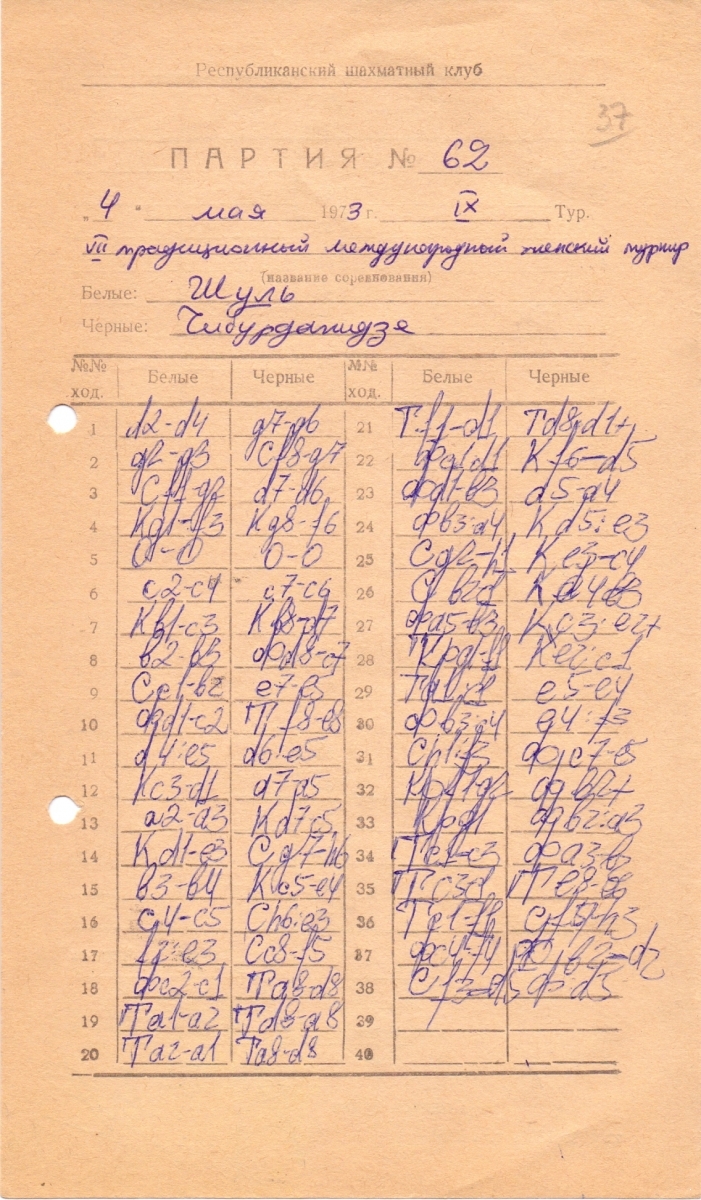 Республиканский шахматный клуб
37
ПАРТИЯ № 62
"4" мая 1973 г. IX Тур.
VII традиционный международный женский турнир
(название соревнования)
Белые: Шуль
Чёрные: Чибурданидзе
№№ ход. Белые Черные №№ ход. Белые Черные
1 d2-d4 g7-g6 21 Тf1-d1 Тd8:d1+
2 g2-g3 Cf8-g7 22 Фc1:d1 Кf6-d5
3 Cf1-g2 d7-d6 23 Фd1-в3
4 Кg1-f3 Кg8-f6 24 Фв3:a4 Кd5:e3
5 0-0 0-0 25 Cg2-h1 Кe3-c4
6 c2-c4 c7-c6 26
7 Кв1-c3 Кв8-d7 27 Фa5-в3 Кc3:e2+
8 в2-в3 Фd8-c7 28 Крg1-f1 Кe2:c1
9 Cc1-в2 e7-e5 29 e5-e4
10 Фd1-c2 Тf8-e8 30 Фв3:c4 g4:f3
11 d4:e5 d6:e5 31 Ch1:f3 Фc7-e5
12 Кc3-d1 a7-a5 32 Крf1-g2 Фв2+
13 a2-a3 Кd7-c5 33 Крg1 Фв2:a3
14 Кd1-e3 Cg7-h6 34 Тc1-c3 Фa3-в2
15 в3-в4 Кc5-e4 35 Тc3c1 Тe8-e6
16 c4-c5 Ch6:e3 36 Тc1-f1 Cf5-h3
17 f2:e3 Cc8-f5 37 Фc4-f4 Фв2-d2
18 Фc2-c1 Тa8-d8 38 Cf3-d5 Ф:d5
19 Тa1-a2 Тd8-a8 39
20 Тa2-a1 Тa8-d8 40